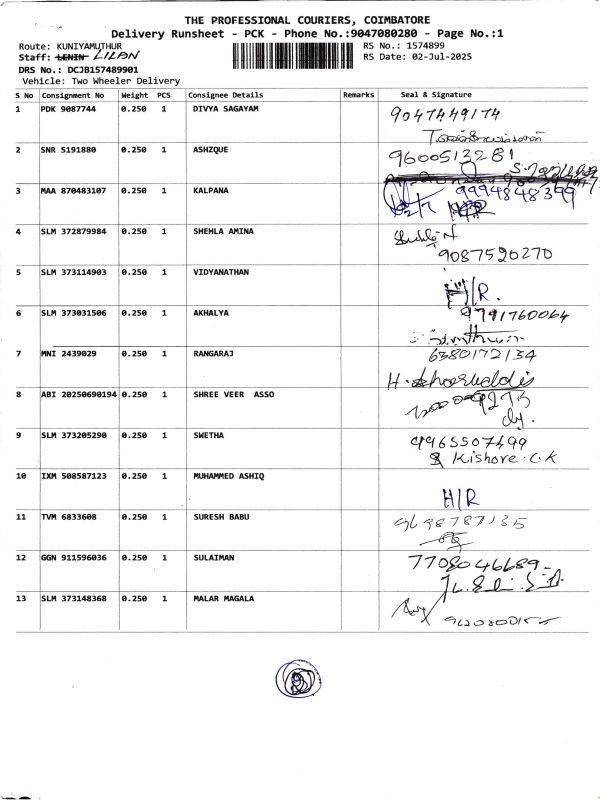 THE PROFESSIONAL COURIERS, COIMBATORE
Delivery Runsheet - PCK - Phone No.:9047080280 - Page No.:1
Route: KUNIYAMUTHUR RS No.: 1574899
Staff: LENIN LILAN RS Date: 02-Jul-2025
DRS No.: DCJB157489901
Vehicle: Two Wheeler Delivery
S No Consignment No Weight PCS Consignee Details Remarks Seal & Signature
1 PDK 9087744 0.250 1 DIVYA SAGAYAM 9047449174
2 SNR 5191880 0.250 1 ASHZQUE 9600513281
3 MAA 870483107 0.250 1 KALPANA 9994848399
H/R
4 SLM 372879984 0.250 1 SHEHLA AMINA
9087520270
5 SLM 373114903 0.250 1 VIDYANATHAN H/R.
6 SLM 373031506 0.250 1 AKHALYA 9791760064
7 MNI 2439029 0.250 1 RANGARAJ 6380172134
8 ABI 20250690194 0.250 1 SHREE VEER ASSO
9 SLM 373205290 0.250 1 SWETHA 9965507499
Kishore.C.K
10 IXM 508587123 0.250 1 MUHAMMED ASHIQ H/R
11 TVM 6833608 0.250 1 SURESH BABU
12 GGN 911596036 0.250 1 SULAIMAN 7708046689
13 SLM 373148368 0.250 1 MALAR MAGALA